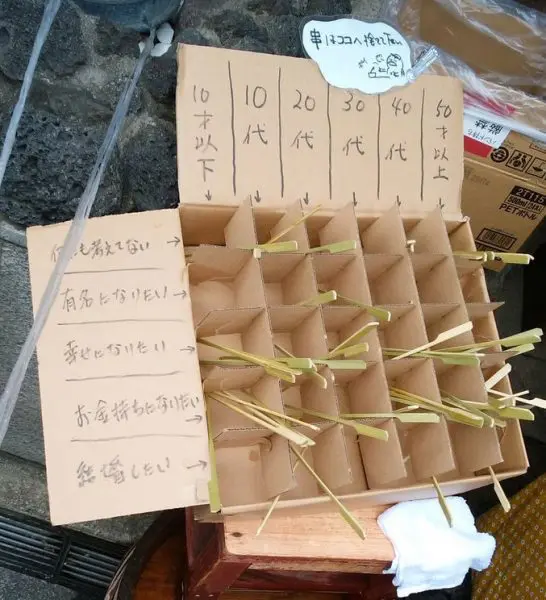 串はココへ捨て下さい
10才以下
10代
20代
30代
40代
50才以上
何も考えてない
有名になりたい
幸せになりたい
お金持ちになりたい
結婚したい
2T115
500ml
PETボトル